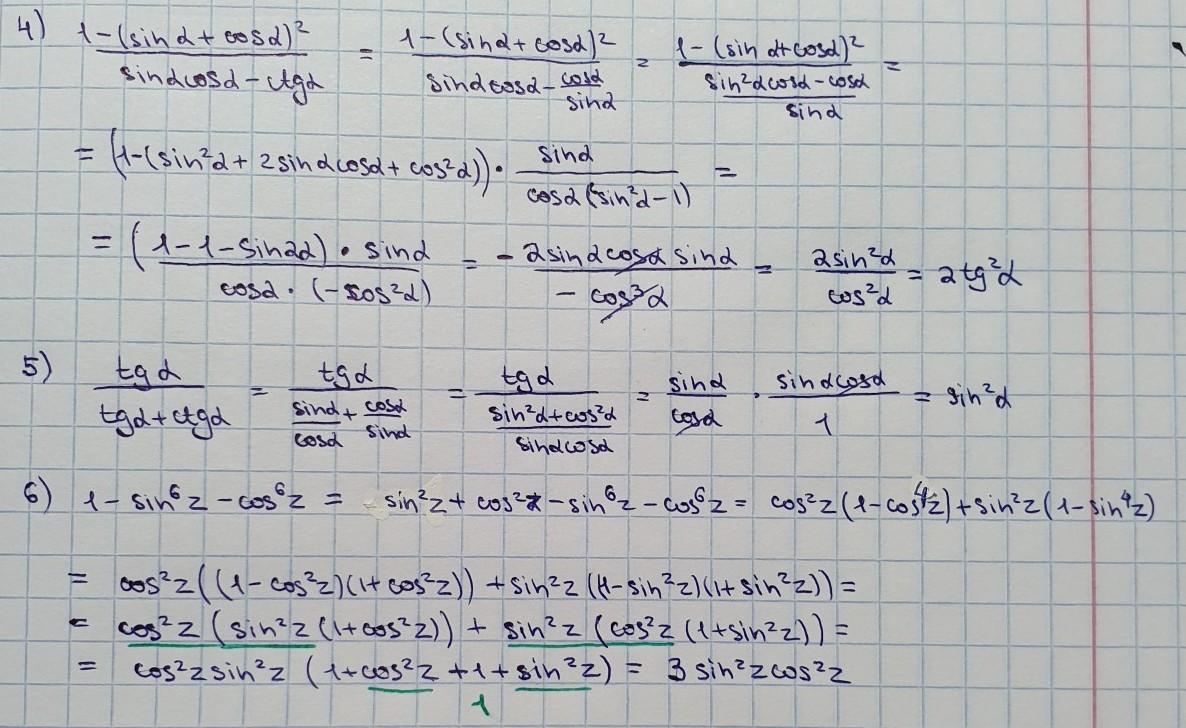 4) (1-(sinα+cosα)²)/(sinαcosα-ctgα) = (1-(sinα+cosα)²)/(sinαcosα-cosα/sinα) = (1-(sinα+cosα)²)/((sin²αcosα-cosα)/sinα) =
= (1-(sin²α+2sinαcosα+cos²α))·sinα/(cosα(sin²α-1)) =
= ((1-1-sin2α)·sinα)/(cosα·(-cos²α)) = -2sinαcosαsinα/(-cos³α) = 2sin²α/cos²α = 2tg²α
5) tgα/(tgα+ctgα) = tgα/(sinα/cosα+cosα/sinα) = tgα/((sin²α+cos²α)/(sinαcosα)) = sinα/cosα · sinαcosα/1 = sin²α
6) 1-sin⁶z-cos⁶z = sin²z+cos²z-sin⁶z-cos⁶z = cos²z(1-cos⁴z)+sin²z(1-sin⁴z)
= cos²z((1-cos²z)(1+cos²z))+sin²z((1-sin²z)(1+sin²z))=
= cos²z(sin²z(1+cos²z))+sin²z(cos²z(1+sin²z))=
= cos²zsin²z(1+cos²z+1+sin²z) = 3sin²zcos²z
1